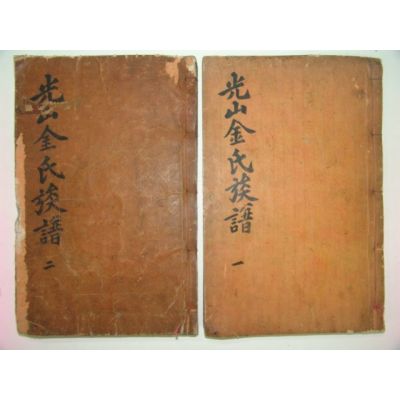 光山金氏族譜 二
光山金氏族譜 一